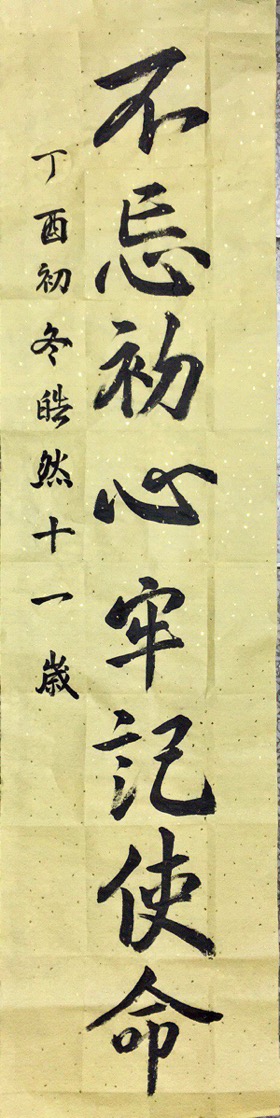 不忘初心牢記使命
丁酉初冬皓然十一歲